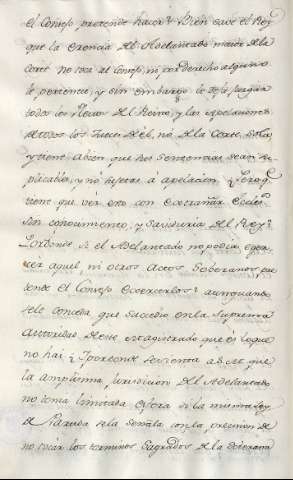 el Consejo pretende hacer? Bien save el Rey
que la erencia del Adelantado maior de la
Corte no toca al Consejo, ni por derecho alguno
le pertenece, y sin embargo le dejo juzgar
todos los Pleitos del Reino, y las apelaciones
de todos los Jueces de el, no de la Corte, 
y tiene a bien que sus Sentencias sean 
plicables, y no sujetas à apelacion. Pero q.e
tiene que ver esto con Estrañar 
sin conocimiento, y Saviduria del Rey?
Por donde si el Adelantado no podia egercer
aquel, ni otros Actos Soberanos, pretende
el Consejo Egercerlos? aunquando
se le conceda que sucedio en la Suprema
Autoridad de este Magistrado que es lo que
no hai? Y por donde se vienta a 
la amplisima jurisdicion del Adelantado
no tenia limitada esfera si la misma Ley
de Partida se la señala con la precision de
no tocar los terminos Sagrados de la Soberania